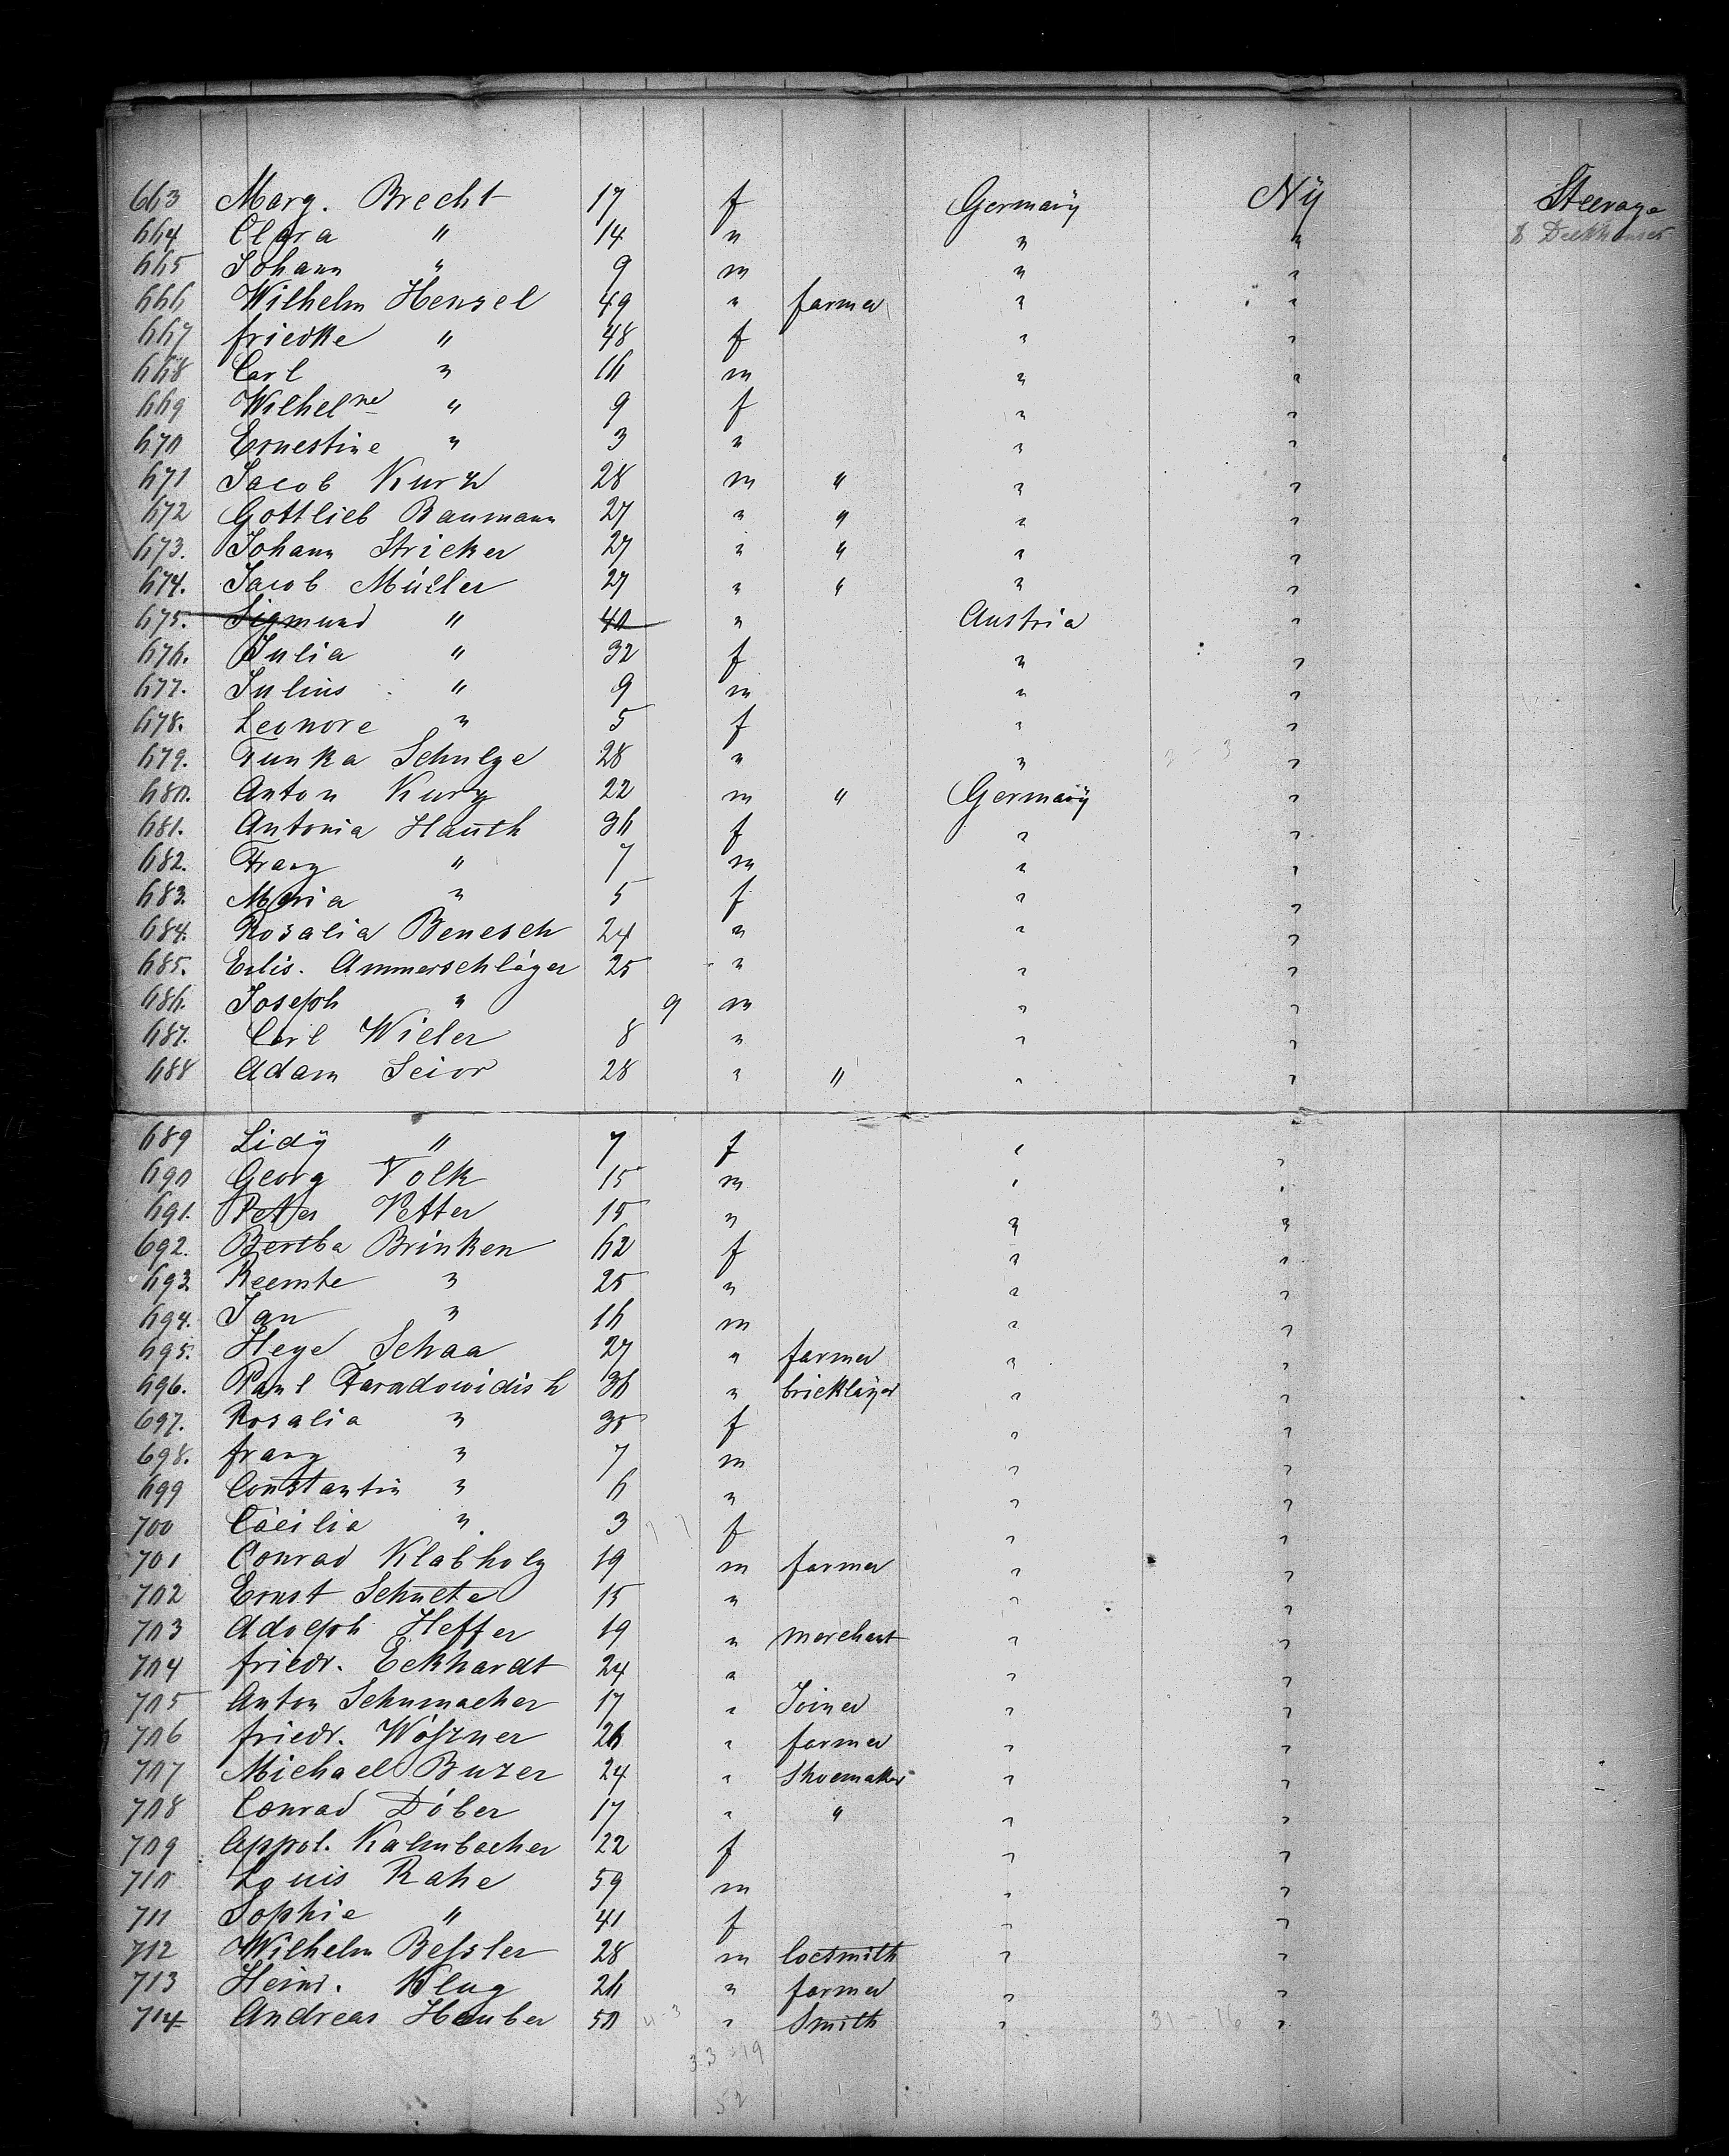 663 Marg. Brecht 17 f Germany Ny Steerage
664 Clara " 14 " " " & Deckhouses
665 Johann " 9 m " "
666 Wilhelm Hensel 49 " farmer " "
667 friedke " 48 f " "
668 Carl " 16 m " "
669 Wilhelne " 9 f " "
670 Ernestine " 3 " " "
671 Jacob Kurz 28 m " " "
672 Gottlieb Baumann 27 " " " "
673. Johann Stricker 27 " " " "
674. Jacob Müller 27 " " " "
675. Sigmund " 40 " Austria "
676. Julia " 32 f " "
677. Julius " 9 m " "
678. Leonore " 5 f " "
679. Tunka Schulze 28 " " "
680. Anton Kurz 22 m " Germany "
681. Antonia Hauth 36 f " "
682. Franz " 7 m " "
683. Maria " 5 f " "
684. Rosalia Benesch 24 " " "
685. Elis. Ammerschläger 25 " " "
686. Joseph " 9 m " "
687. Carl Wieler 8 " " "
688 Adam Seior 28 " " " "
689 Lidy " 7 f " "
690 Georg Volk 15 m " "
691. Peter Vetter 15 " " "
692. Bertba Brinken 62 f " "
693. Reemte " 25 " " "
694. Jan " 16 m " "
695. Heye Schaa 27 " farmer " "
696. Paul Taradowidish 36 " bricklayer " "
697. Rosalia " 35 f " "
698. franz " 7 m " "
699 Constantin " 6 " " "
700 Cäcilia " 3 f " "
701 Conrad Klabholz 19 m farmer " "
702 Ernst Schulte 15 " " "
703 Adolph Heffer 19 " merchant " "
704 friedr. Eckhardt 24 " " "
705 Anton Schumacher 17 " Joiner " "
706 friedr. Wößner 26 " farmer " "
707 Michael Buzer 24 " Shoemaker " "
708 Conrad Döber 17 " " " "
709 Appol. Kalmbacher 22 f " "
710 Louis Rahe 59 m " "
711 Sophie " 41 f " "
712 Wilhelm Beßler 28 m locsmith " "
713 Heinr. Klug 26 " farmer " "
714 Andreas Hauber 50 " Smith " " 31 - 16
33 - 19
52